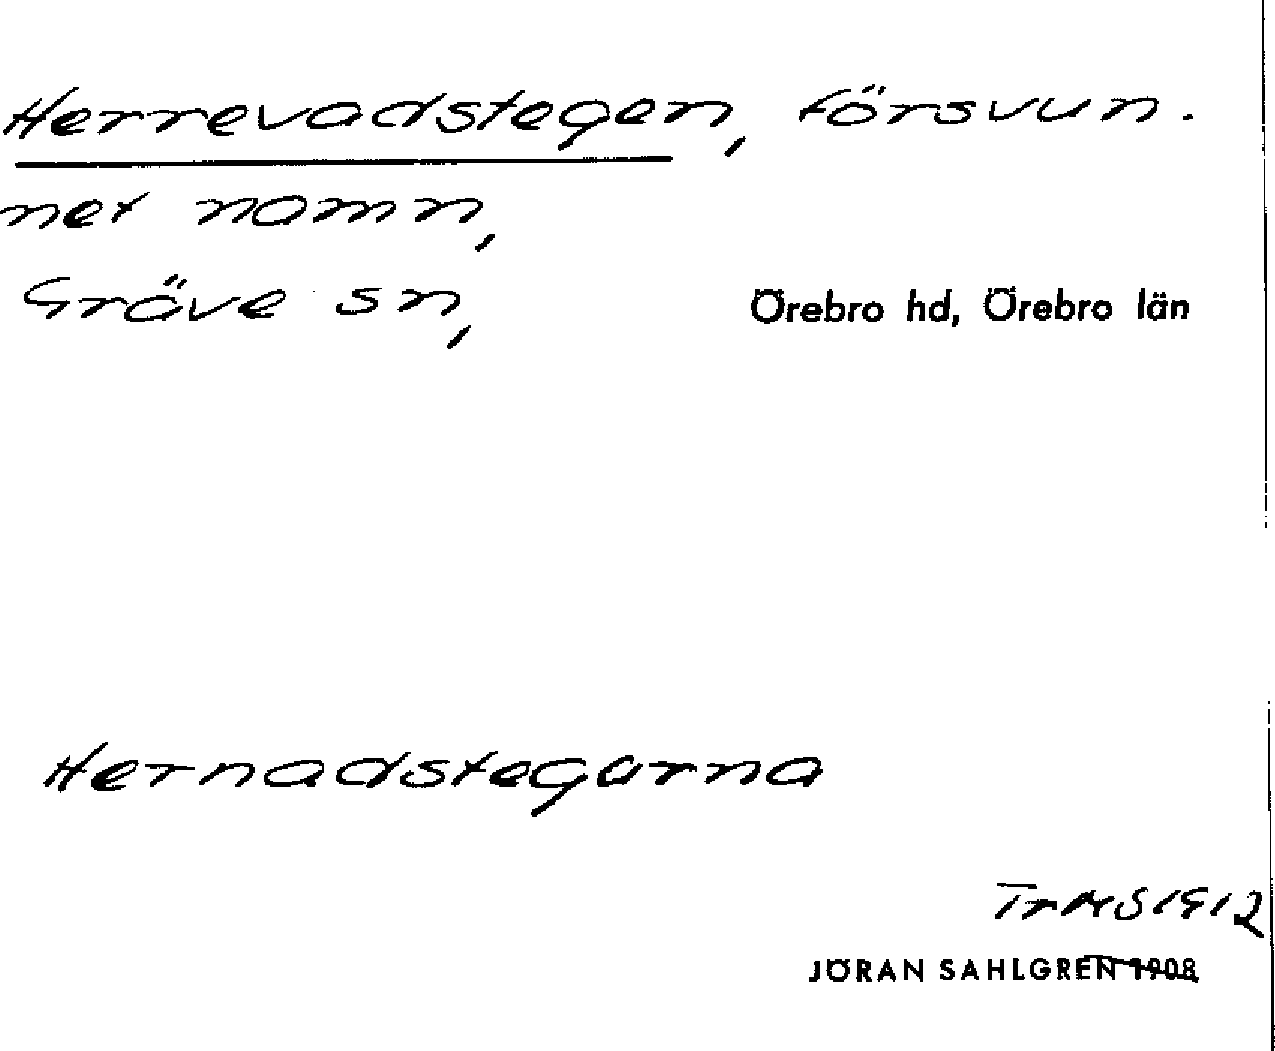 Herrevadstegen, försvun.
net namn,
Gräve sn, Örebro hd, Örebro län
Hernadstegarna
TrMS1912
JÖRAN SAHLGREN 1908